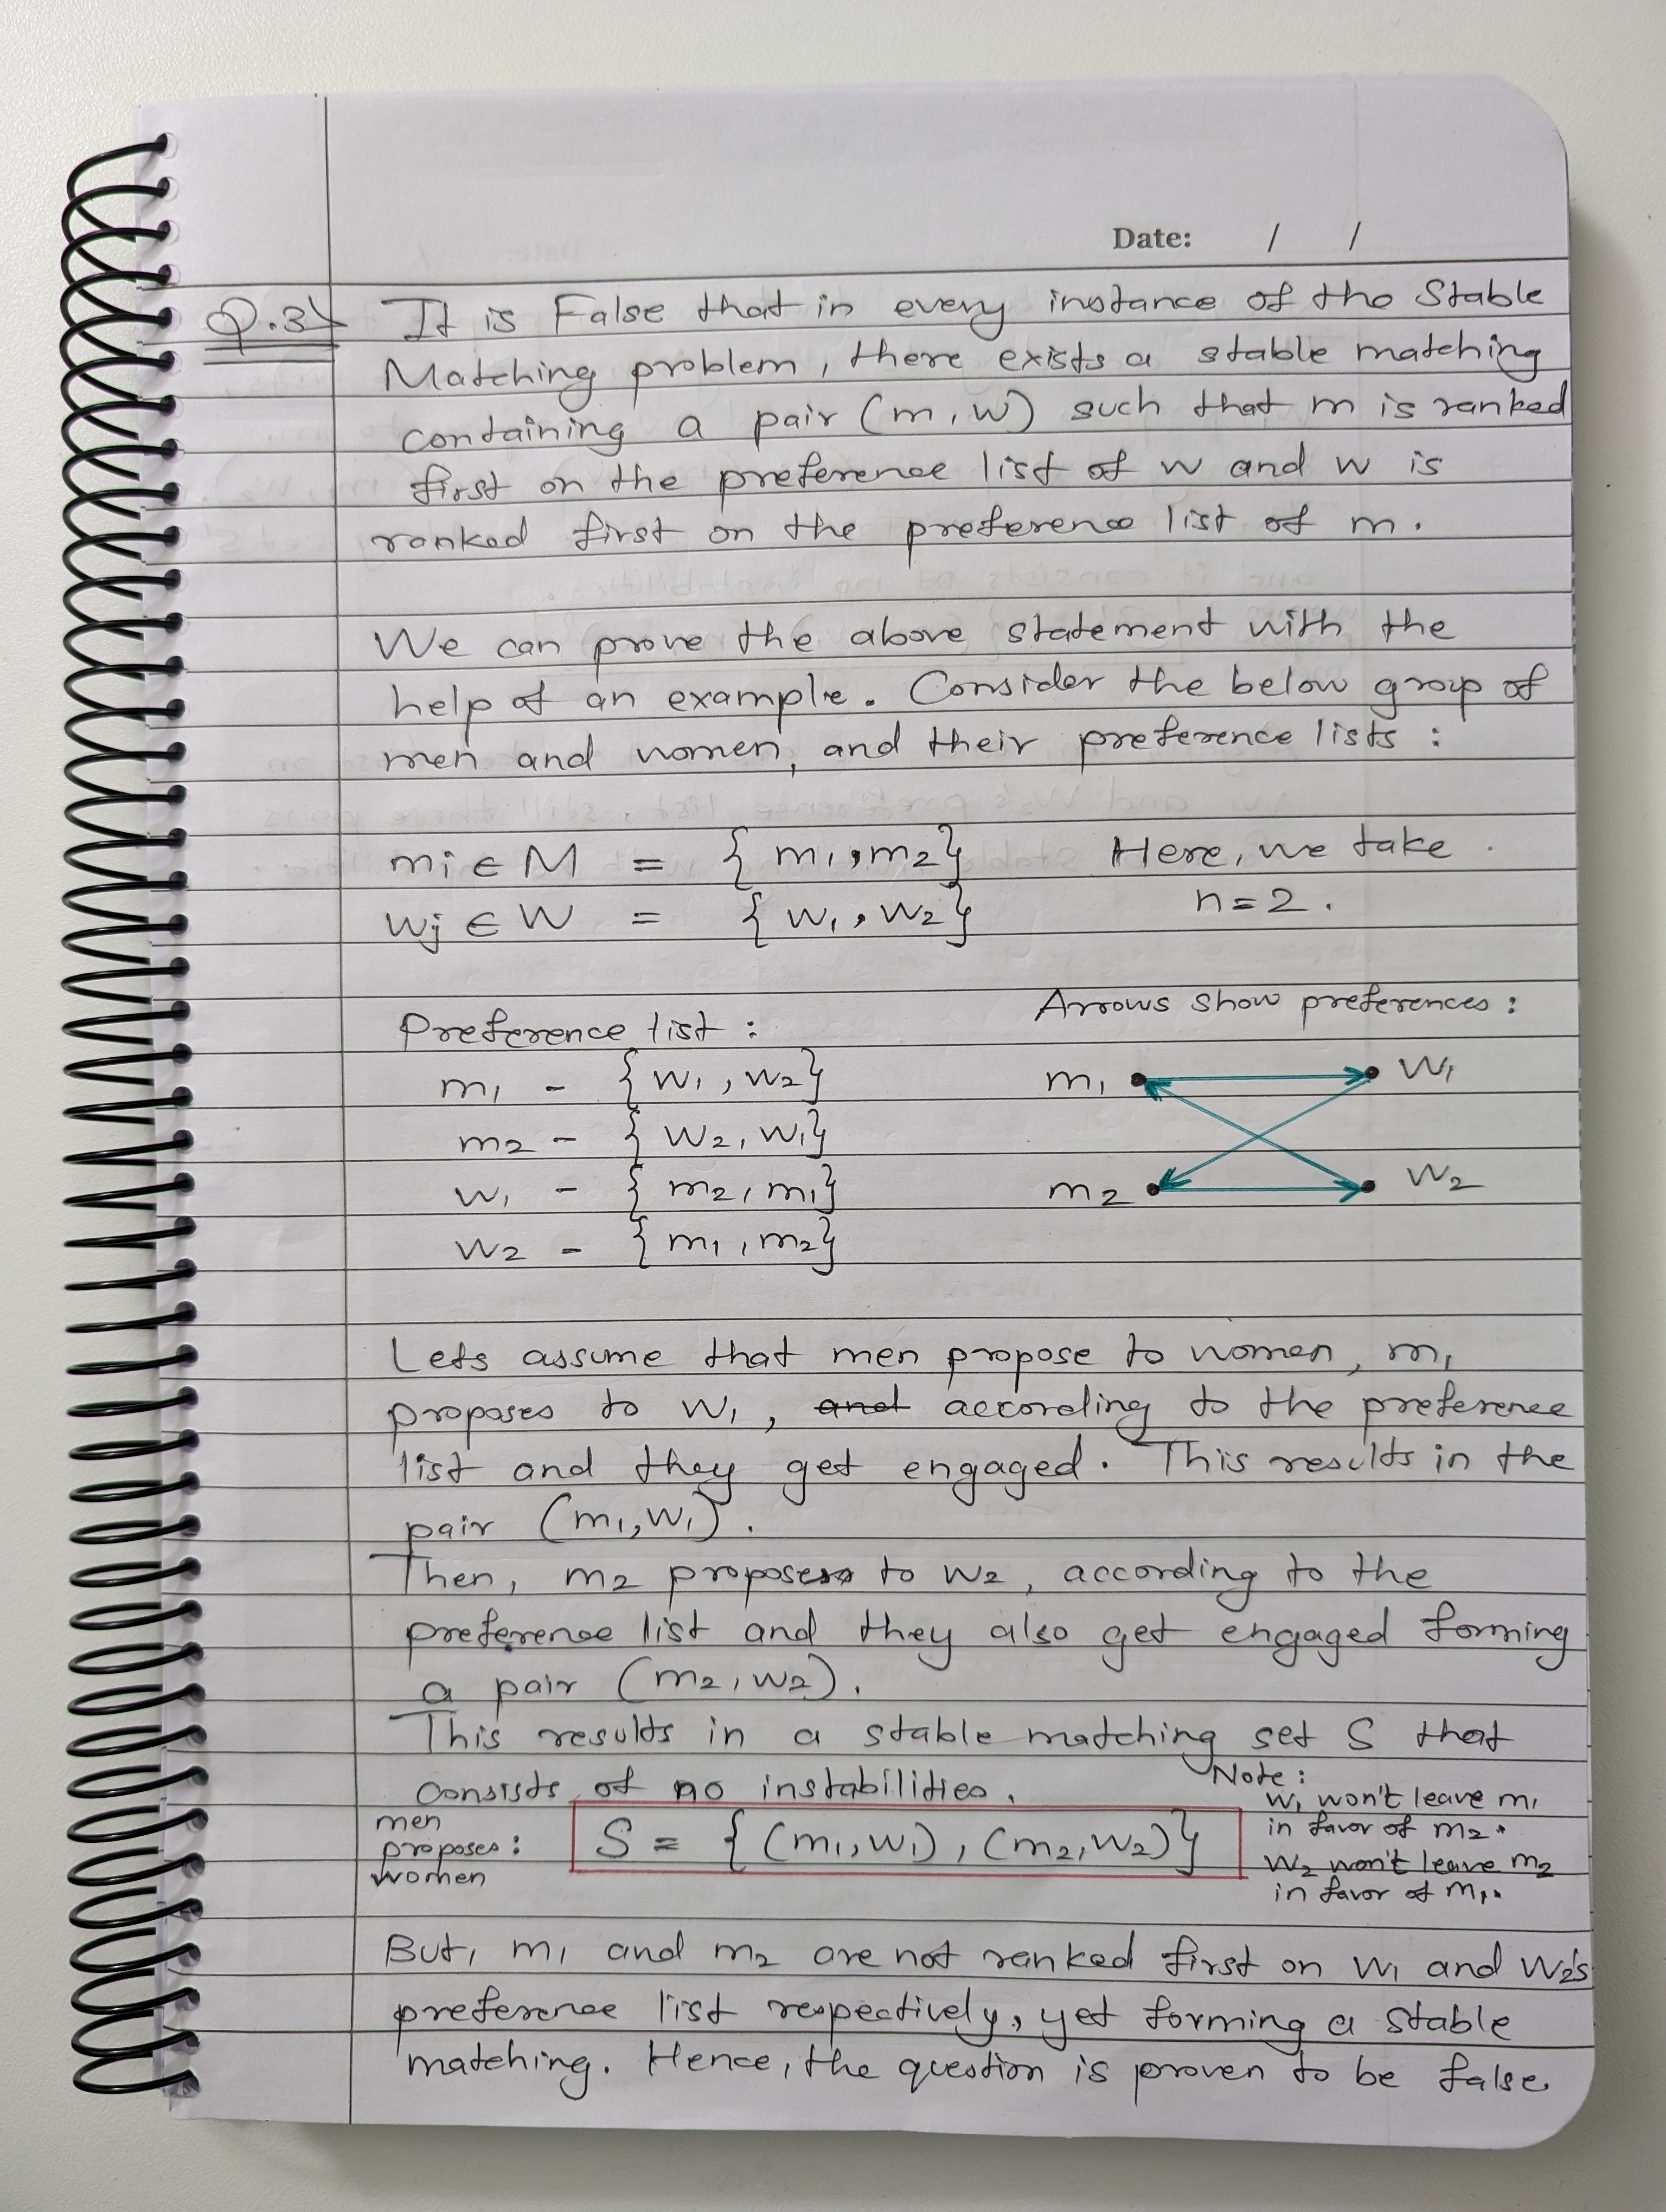 Date: / /
Q.3) It is False that in every instance of the Stable
Matching problem, there exists a stable matching
containing a pair (m, w) such that m is ranked
first on the preference list of w and w is
ranked first on the preference list of m.
We can prove the above statement with the
help of an example. Consider the below group of
men and women, and their preference lists :
mi ∈ M = { m1, m2} Here, we take
wj ∈ W = { w1, w2} n=2.
Preference list : Arrows show preferences :
m1 - { w1, w2} m1 w1
m2 - { w2, w1}
w1 - { m2, m1} m2 w2
w2 - { m1, m2}
Lets assume that men propose to women, m1
proposes to w1, and according to the preference
list and they get engaged. This results in the
pair (m1, w1).
Then, m2 proposes to w2, according to the
preference list and they also get engaged forming
a pair (m2, w2).
This results in a stable matching set S that
consists of no instabilities.
men
proposes :
women
S = { (m1, w1), (m2, w2)}
Note :
w1 won't leave m1
in favor of m2.
w2 won't leave m2
in favor of m1.
But, m1 and m2 are not ranked first on w1 and w2's
preference list respectively, yet forming a stable
matching. Hence, the question is proven to be false.